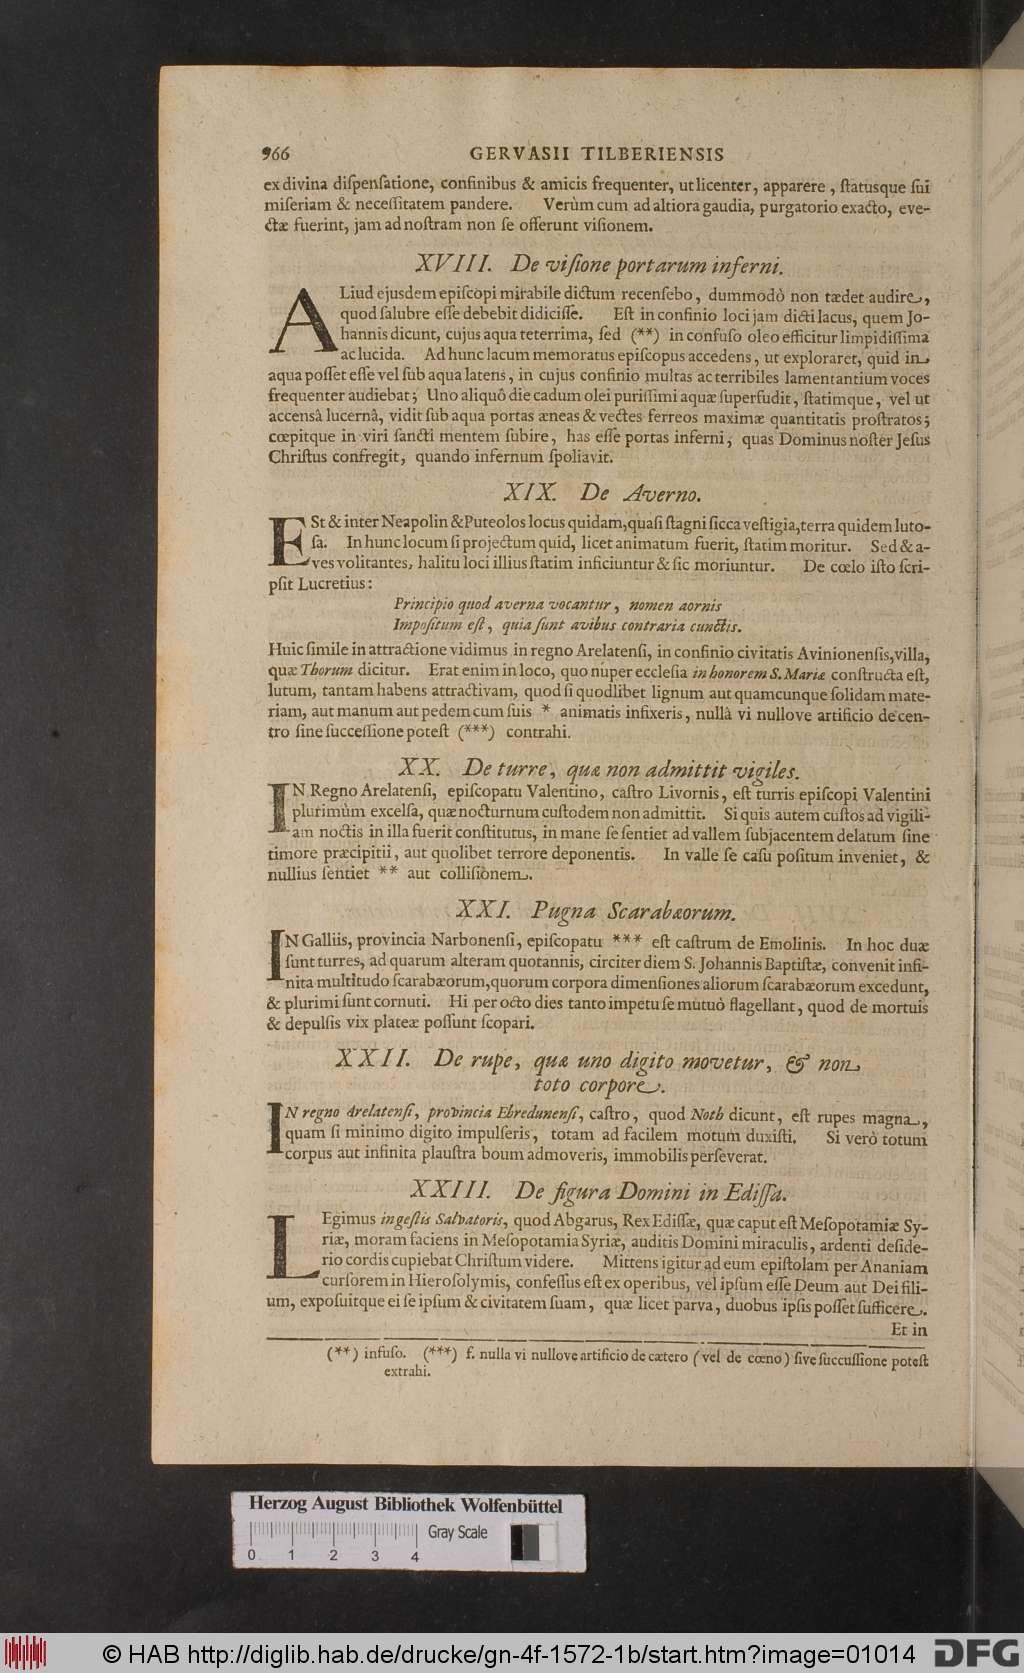 966 GERVASII TILBERIENSIS
ex divina diſpenſatione, confinibus & amicis frequenter, ut licenter, apparere, ſtatusque ſui
miſeriam & neceſſitatem pandere. Verùm cum ad altiora gaudia, purgatorio exacto, eve-
ctæ fuerint, jam ad noſtram non ſe offerunt viſionem.
XVIII. De viſione portarum inferni.
ALiud ejusdem epiſcopi mirabile dictum recenſebo, dummodò non tædet audire,
quod ſalubre eſſe debebit didiciſſe. Eſt in confinio loci jam dicti lacus, quem Jo-
hannis dicunt, cujus aqua teterrima, ſed (**) in confuſo oleo efficitur limpidiſſima
ac lucida. Ad hunc lacum memoratus epiſcopus accedens, ut exploraret, quid in
aqua poſſet eſſe vel ſub aqua latens, in cujus confinio multas ac terribiles lamentantium voces
frequenter audiebat; Uno aliquô die cadum olei puriſſimi aquæ ſuperfudit, ſtatimque, vel ut
accensâ lucernâ, vidit ſub aqua portas æneas & vectes ferreos maximæ quantitatis proſtratos;
cœpitque in viri ſancti mentem ſubire, has eſſe portas inferni, quas Dominus noſter Jeſus
Chriſtus confregit, quando infernum ſpoliavit.
XIX. De Averno.
ESt & inter Neapolin & Puteolos locus quidam, quaſi ſtagni ſicca veſtigia, terra quidem luto-
ſa. In hunc locum ſi projectum quid, licet animatum fuerit, ſtatim moritur. Sed & a-
ves volitantes, halitu loci illius ſtatim inficiuntur & ſic moriuntur. De cœlo iſto ſcri-
pſit Lucretius:
Principio quod averna vocantur, nomen aornis
Impoſitum eſt, quia ſunt avibus contraria cunctis.
Huic ſimile in attractione vidimus in regno Arelatenſi, in confinio civitatis Avinionenſis, villa,
quæ Thorum dicitur. Erat enim in loco, quo nuper eccleſia in honorem S. Mariæ conſtructa eſt,
lutum, tantam habens attractivam, quod ſi quodlibet lignum aut quamcunque ſolidam mate-
riam, aut manum aut pedem cum ſuis * animatis infixeris, nullâ vi nullove artificio de cen-
tro ſine ſucceſſione poteſt (***) contrahi.
XX. De turre, quæ non admittit vigiles.
IN Regno Arelatenſi, epiſcopatu Valentino, caſtro Livornis, eſt turris epiſcopi Valentini
plurimùm excelſa, quæ nocturnum cuſtodem non admittit. Si quis autem cuſtos ad vigili-
am noctis in illa fuerit conſtitutus, in mane ſe ſentiet ad vallem ſubjacentem delatum ſine
timore præcipitii, aut quolibet terrore deponentis. In valle ſe caſu poſitum inveniet, &
nullius ſentiet ** aut colliſionem.
XXI. Pugna Scarabæorum.
IN Galliis, provincia Narbonenſi, epiſcopatu *** eſt caſtrum de Emolinis. In hoc duæ
ſunt turres, ad quarum alteram quotannis, circiter diem S. Johannis Baptiſtæ, convenit infi-
nita multitudo ſcarabæorum, quorum corpora dimenſiones aliorum ſcarabæorum excedunt,
& plurimi ſunt cornuti. Hi per octo dies tanto impetu ſe mutuò flagellant, quod de mortuis
& depulſis vix plateæ poſſunt ſcopari.
XXII. De rupe, quæ uno digito movetur, & non
toto corpore.
IN regno Arelatenſi, provincia Ebredunenſi, caſtro, quod Noth dicunt, eſt rupes magna,
quam ſi minimo digito impulſeris, totam ad facilem motum duxiſti. Si verò totum
corpus aut infinita plauſtra boum admoveris, immobilis perſeverat.
XXIII. De figura Domini in Ediſſa.
LEgimus in geſtis Salvatoris, quod Abgarus, Rex Ediſſæ, quæ caput eſt Meſopotamiæ Sy-
riæ, moram faciens in Meſopotamia Syriæ, auditis Domini miraculis, ardenti deſide-
rio cordis cupiebat Chriſtum videre. Mittens igitur ad eum epiſtolam per Ananiam
curſorem in Hieroſolymis, confeſſus eſt ex operibus, vel ipſum eſſe Deum aut Dei fili-
um, expoſuitque ei ſe ipſum & civitatem ſuam, quæ licet parva, duobus ipſis poſſet ſufficere.
Et in
(**) infuſo. (***) f. nulla vi nullove artificio de cætero (vel de cœno) ſive ſuccuſſione poteſt
extrahi.
Herzog August Bibliothek Wolfenbüttel
Gray Scale
0 1 2 3 4
© HAB http://diglib.hab.de/drucke/gn-4f-1572-1b/start.htm?image=01014 DFG